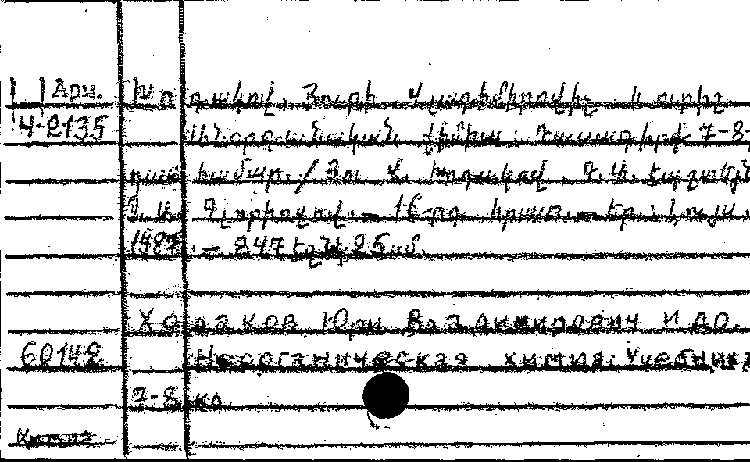 Арм. Խոդակով, Յուրի Վլադիմիրովիչ և ուրիշ
4-2135 Անօրգանական քիմիա: Դասագիրք 7-8
դաս համար. / Յու. Վ. Խոդակով, Դ. Ա. Էպշտեյն
Պ. Ա. Գլորիոզով. — 16-րդ հրատ. — Եր.: Լույս
1987. — 247 էջ 25 սմ.
Ходаков Юрий Владимирович и др.
60148 Неорганическая химия: Учебник
7-8 кл
Химия